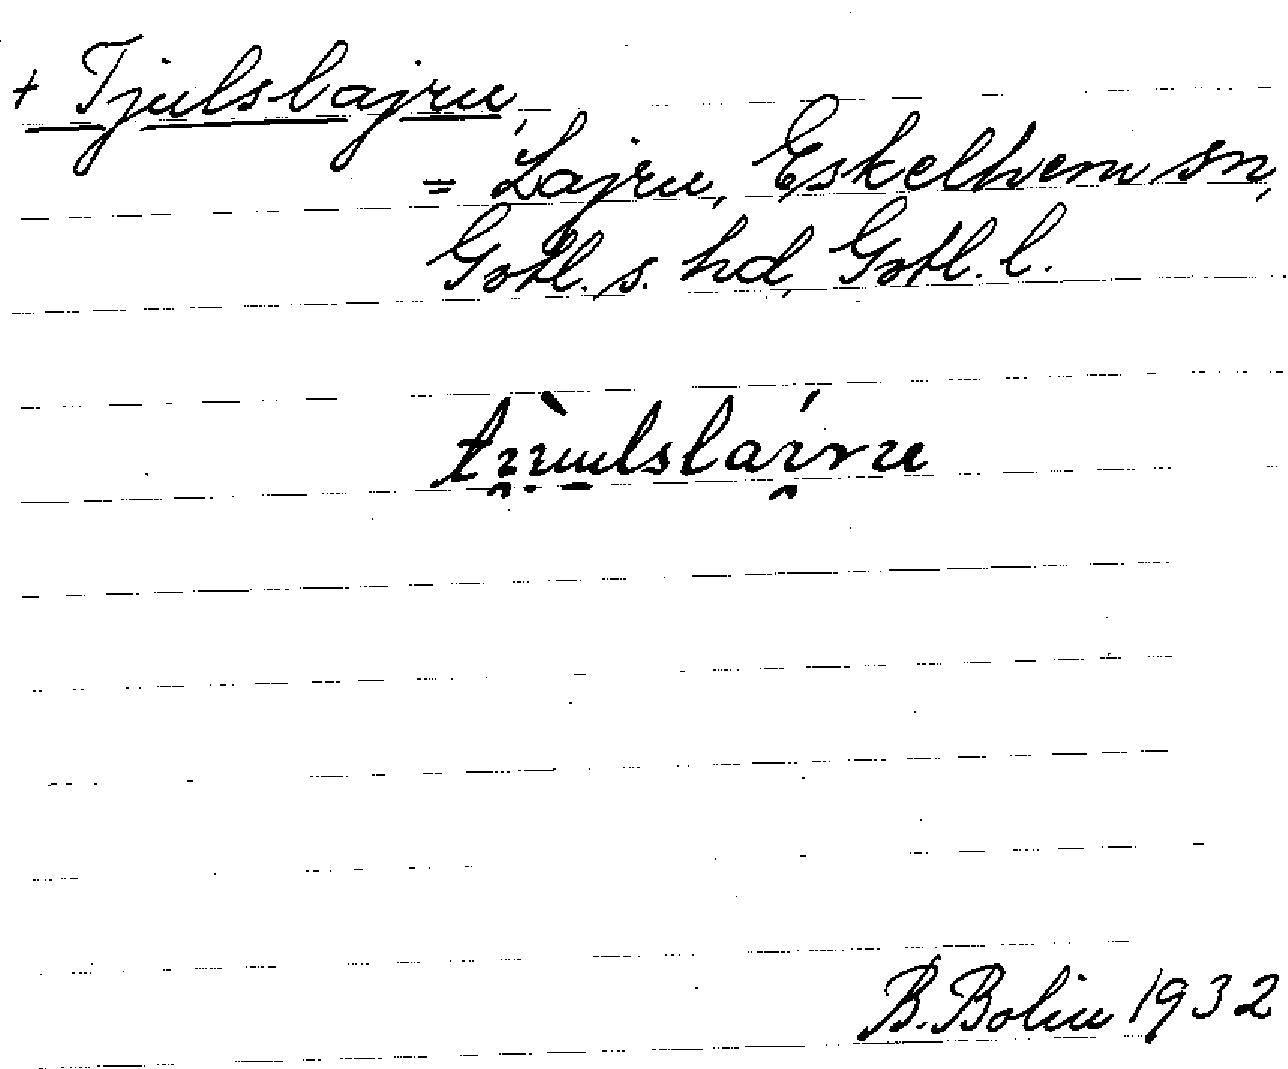 + Tjulslajru,
= Lajru, Eskelhem sn,
Gotl. s. hd, Gotl. l.
B. Bolin 1932